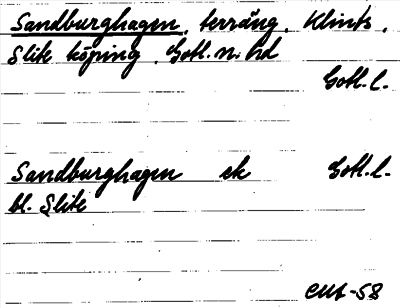 Sandburghagen, terräng, Klints,
Slite köping, Gotl. n. hd
Gotl. l.
Sandburghagen ek Gotl. l.
bl. Slite
CMA-58